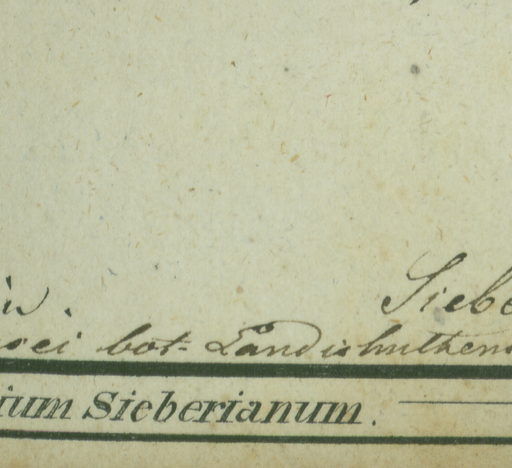 Siebe
sei bot. Landishuthens
ium Sieberianum.